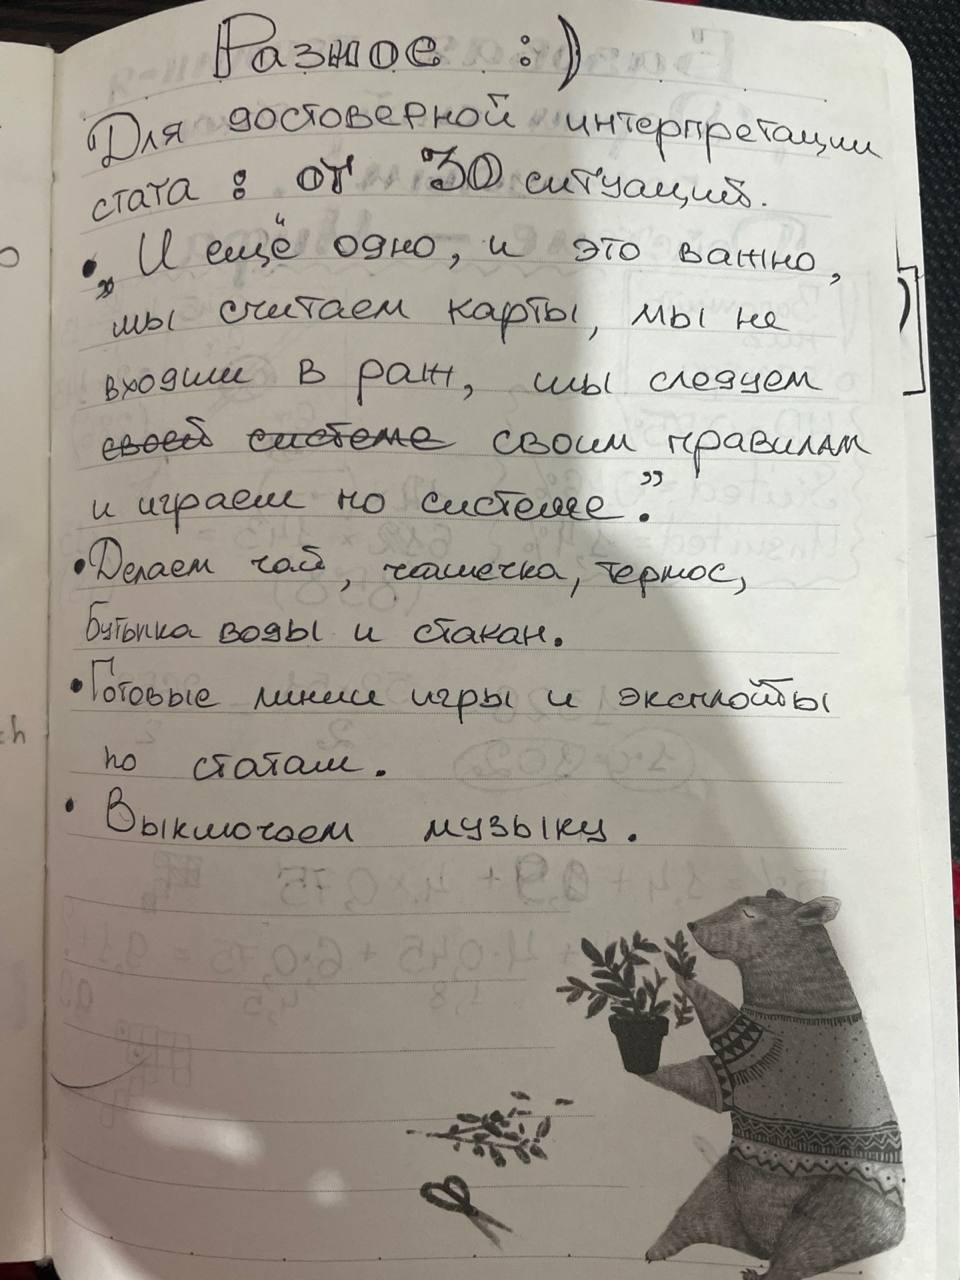 Разное :)
Для достоверной интерпретации
стата : от 30 ситуаций.
• „И ещё одно, и это важно,
мы считаем карты, мы не
входим в раж, мы следуем
своей системе своим правилам
и играем по системе."
• Делаем чай, чашечка, термос,
Бутылка воды и стакан.
• Готовые линии игры и эксплойты
по статам.
• Выключаем музыку.